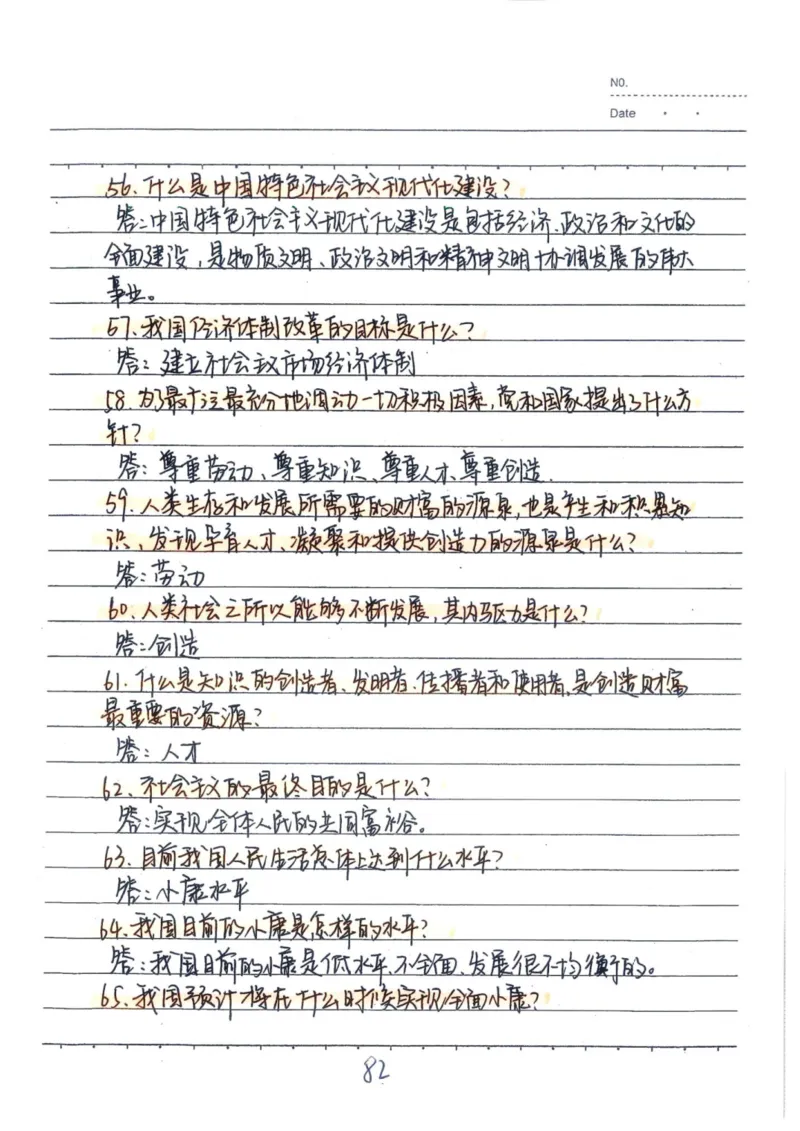 NO.
Date
56.什么是中国特色社会主义现代化建设?
答:中国特色社会主义现代化建设是包括经济、政治和文化的
全面建设,是物质文明、政治文明和精神文明协调发展的伟大
事业。
57.我国经济体制改革的目标是什么?
答:建立社会主义市场经济体制
58.为了最广泛最充分地调动一切积极因素,党和国家提出了什么方
针?
答:尊重劳动、尊重知识、尊重人才、尊重创造.
59.人类生存和发展所需要的财富的源泉,也是产生和积累知
识、发现孕育人才、凝聚和提供创造力的源泉是什么?
答:劳动
60.人类社会之所以能够不断发展,其内驱力是什么?
答:创造
61.什么是知识的创造者、发明者、传播者和使用者,是创造财富
最重要的资源?
答:人才
62、社会主义的最终目的是什么?
答:实现全体人民的共同富裕。
63.目前我国人民生活总体上达到什么水平?
答:小康水平
64.我国目前的小康是怎样的水平?
答:我国目前的小康是低水平、不全面、发展很不均衡的。
65.我国预计将在什么时候实现全面小康?
82